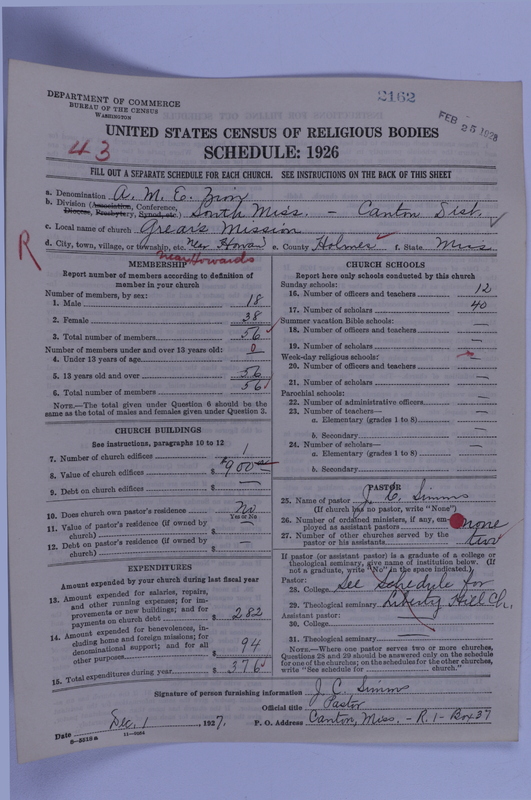 DEPARTMENT OF COMMERCE
BUREAU OF THE CENSUS
WASHINGTON
2162
FEB 25 1928
UNITED STATES CENSUS OF RELIGIOUS BODIES
43
SCHEDULE: 1926
FILL OUT A SEPARATE SCHEDULE FOR EACH CHURCH. SEE INSTRUCTIONS ON THE BACK OF THIS SHEET
a. Denomination A. M. E. Zion
b. Division (Association, Conference, Diocese, Presbytery, Synod, etc.) South Miss. - Canton Dist.
c. Local name of church Grear's Mission
R
d. City, town, village, or township, etc. Near Howard e. County Holmes f. State Miss.
Near Howards
MEMBERSHIP
Report number of members according to definition of
member in your church
Number of members, by sex:
1. Male 18
2. Female 38
3. Total number of members 56
Number of members under and over 13 years old:
4. Under 13 years of age 0
5. 13 years old and over 56
6. Total number of members 56
NOTE.—The total given under Question 6 should be the
same as the total of males and females given under Question 3.
CHURCH BUILDINGS
See instructions, paragraphs 10 to 12
7. Number of church edifices 1
8. Value of church edifices $900
9. Debt on church edifices $ —
10. Does church own pastor's residence? No
Yes or No
11. Value of pastor's residence (if owned by
church) $ —
12. Debt on pastor's residence (if owned by
church) $ —
EXPENDITURES
Amount expended by your church during last fiscal year
13. Amount expended for salaries, repairs,
and other running expenses; for im-
provements or new buildings; and for
payments on church debt $ 282
14. Amount expended for benevolences, in-
cluding home and foreign missions; for
denominational support; and for all
other purposes $ 94
15. Total expenditures during year $ 376
CHURCH SCHOOLS
Report here only schools conducted by this church
Sunday schools:
16. Number of officers and teachers 12
17. Number of scholars 40
Summer vacation Bible schools:
18. Number of officers and teachers —
19. Number of scholars —
Week-day religious schools:
20. Number of officers and teachers —
21. Number of scholars —
Parochial schools:
22. Number of administrative officers —
23. Number of teachers—
a. Elementary (grades 1 to 8) —
b. Secondary —
24. Number of scholars—
a. Elementary (grades 1 to 8) —
b. Secondary
PASTOR
25. Name of pastor J. C. Simms
(If church has no pastor, write "None")
26. Number of ordained ministers, if any, em-
ployed as assistant pastors none
27. Number of other churches served by the
pastor or his assistants two
If pastor (or assistant pastor) is a graduate of a college or
theological seminary, give name of institution below. (If
not a graduate, write "No" in the space indicated.)
Pastor:
28. College See Schedule for
29. Theological seminary Liberty Hill Ch.
Assistant pastor:
30. College —
31. Theological seminary —
NOTE.—Where one pastor serves two or more churches,
Questions 28 and 29 should be answered only on the schedule
for one of the churches; on the schedules for the other churches,
write "See schedule for church."
Signature of person furnishing information J. C. Simms
Official title Pastor
Date Dec. 1, 1927. P. O. Address Canton, Miss. - R. 1 - Box 37
8-5218a 11-9664